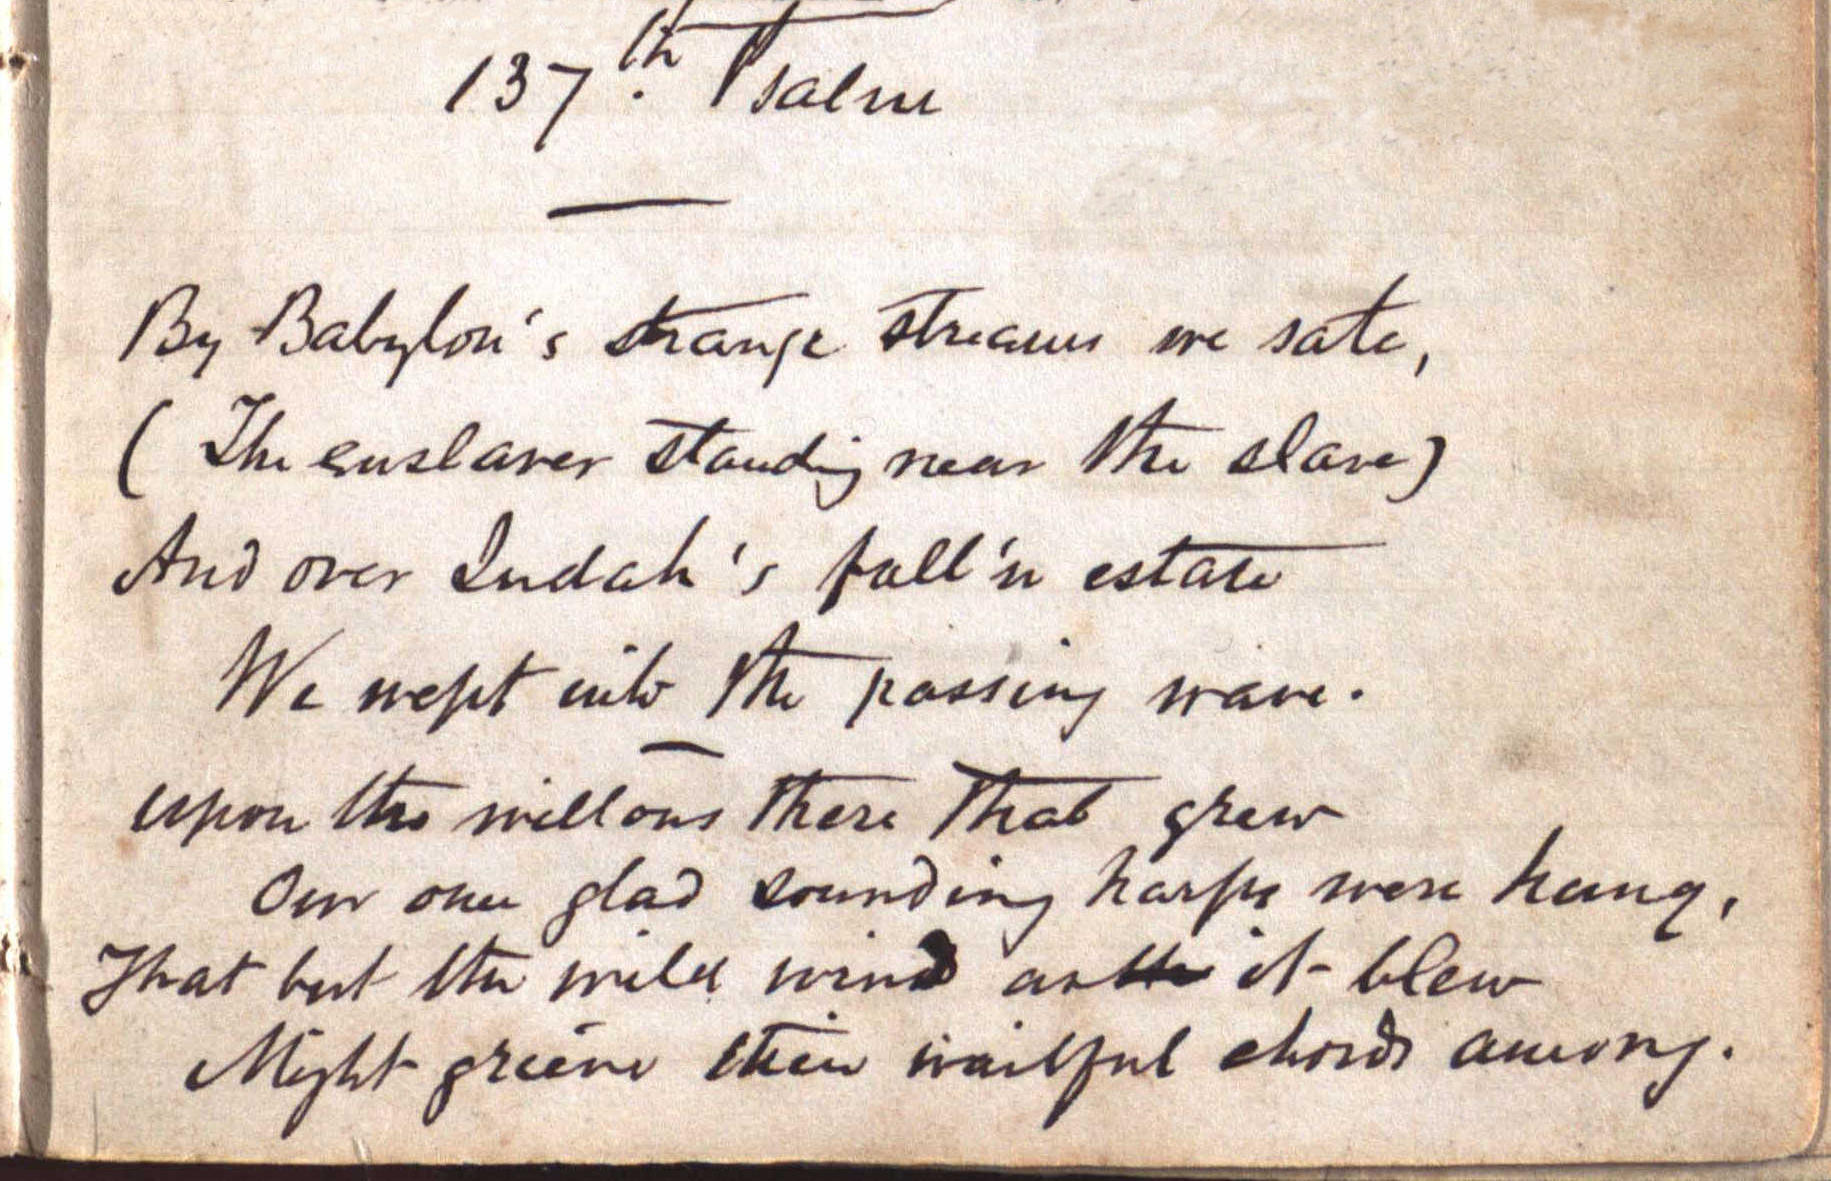 137th. Psalm
By Babylon's strange streams we sate,
(The enslaver standing near the slave)
And over Judah's fall'n estate
We wept into the passing wave.
upon the willows there that grew
Our once glad sounding harps were hung,
That but the wild wind as it blew
Might grieve their wailful chords among.